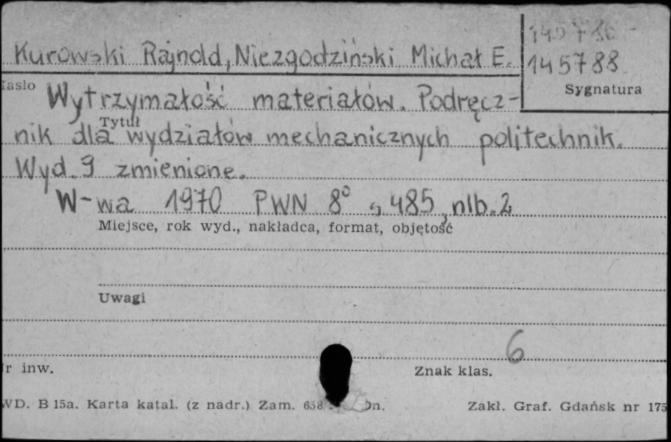 145786 -
Kurowski Rajnold, Niezgodziński Michał E.
145788
Sygnatura
Hasło
Wytrzymałość materiałów. Podręcz-
Tytuł
nik dla wydziałów mechanicznych politechnik.
Wyd. 9 zmienione.
W-wa 1970 PWN 8° s 485, nlb. 2
Miejsce, rok wyd., nakładca, format, objętość
Uwagi
6
r inw.
Znak klas.
WD. B 15a. Karta katal. (z nadr.) Zam. 658
Zakł. Graf. Gdańsk nr 175